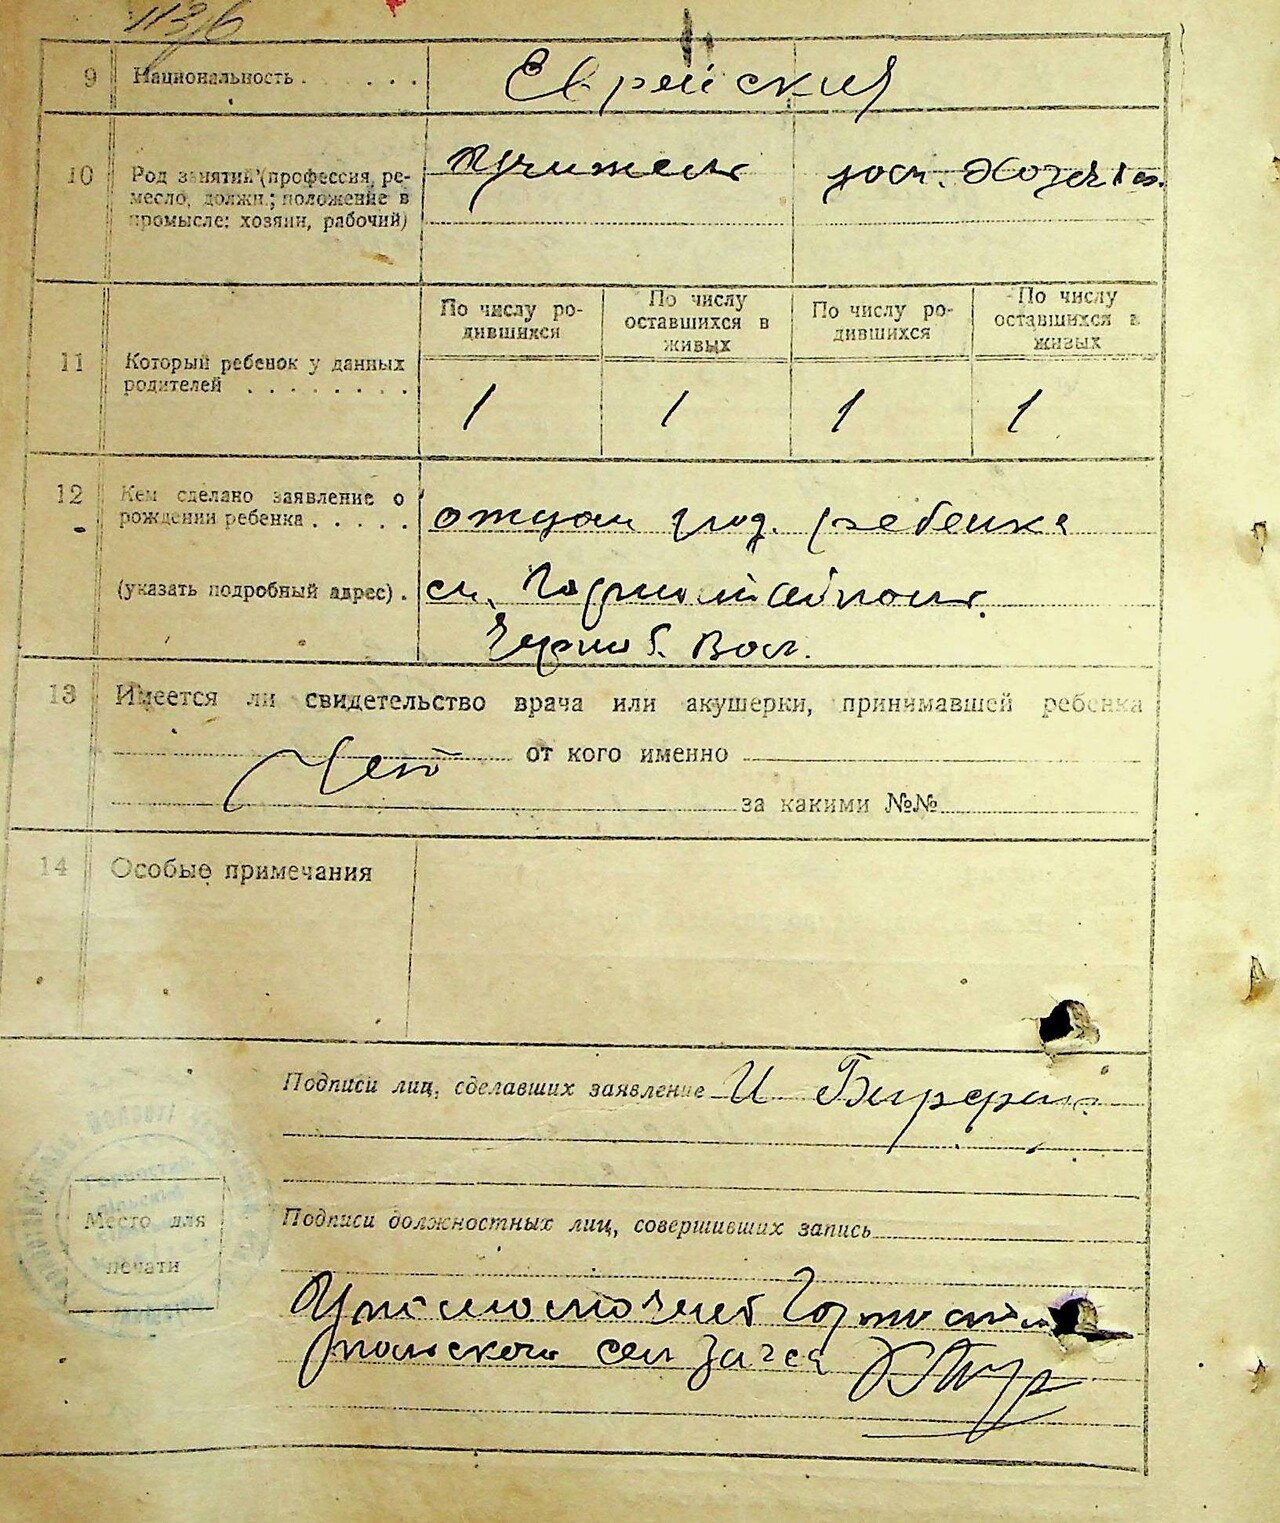 1136
9 Национальность . . . . . Еврейския
10 Род занятий (профессия, ре-
месло, должн.; положение в
промысле: хозяин, рабочий)
учитель
11 Который ребенок у данных
родителей . . . . . . . .
По числу ро-
дившихся
По числу
оставшихся в
живых
По числу ро-
дившихся
По числу
оставшихся в
живых
1 1 1 1
12 Кем сделано заявление о
рождении ребенка . . . . .
отцом род. ребенка
(указать подробный адрес) .
м. Горностайполь
Черноб. Вол.
13 Имеется ли свидетельство врача или акушерки, принимавшей ребенка
Нет от кого именно
за какими №№
14 Особые примечания
Подписи лиц, сделавших заявление И
Место для
печати
Подписи должностных лиц, совершивших запись
Уполномочен Горностай
польского сел загса